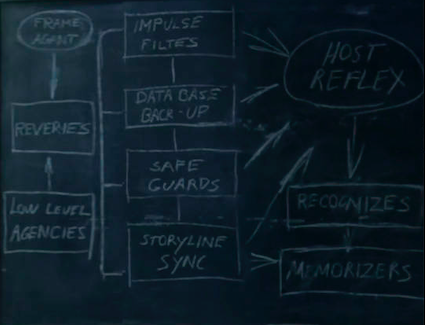 FRAME
AGENT
REVERIES
LOW LEVEL
AGENCIES
IMPULSE
FILTES
DATA BASE
BACK-UP
SAFE
GUARDS
STORYLINE
SYNC
HOST
REFLEX
RECOGNIZES
MEMORIZERS